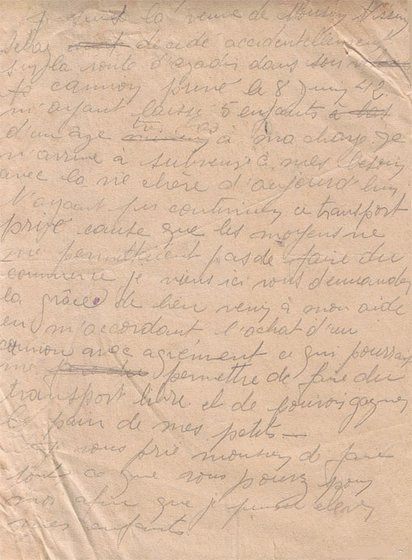 Je suis la veuve de Monsieur Nissim
décédé accidentellement
sur la route d'agadir dans son
camion privé le 8 juin 42
m'ayant laissé 5 enfants à
d'un age très à ma charge je
n'arrive à subvenir à mes besoins
avec la vie chère d'aujourd'hui
N'ayant pu continuer ce transport
privé cause que les moyens ne
me permettent pas de faire du
commerce je viens ici vous demander
la grâce de bien venir à mon aide
en m'accordant l'achat d'un
camion avec agrément ce qui pourra
me permettre de faire du
transport libre et de pouvoir gagner
le pain de mes petits —
Je vous prie monsieur de faire
tout ce que vous pouvez pour
moi afin que je puisse élever
mes enfants